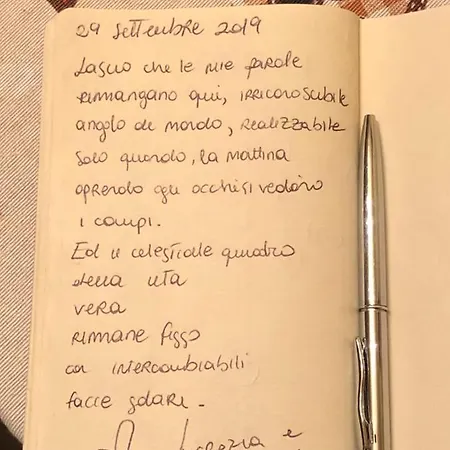 29 Settembre 2019
Lascio che le mie parole
rimangano qui, irriconoscibile
angolo di mondo, realizzabile
solo quando, la mattina
aprendo gli occhi si vedono
i campi.
Ed il celestiale quadro
della vita
vera
rimane fisso
con intercambiabili
facce solari.